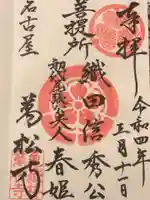 奉拝
令和四年
五月十一日
菩提所
織田信秀公
夫人 春姫
名古屋
萬松寺